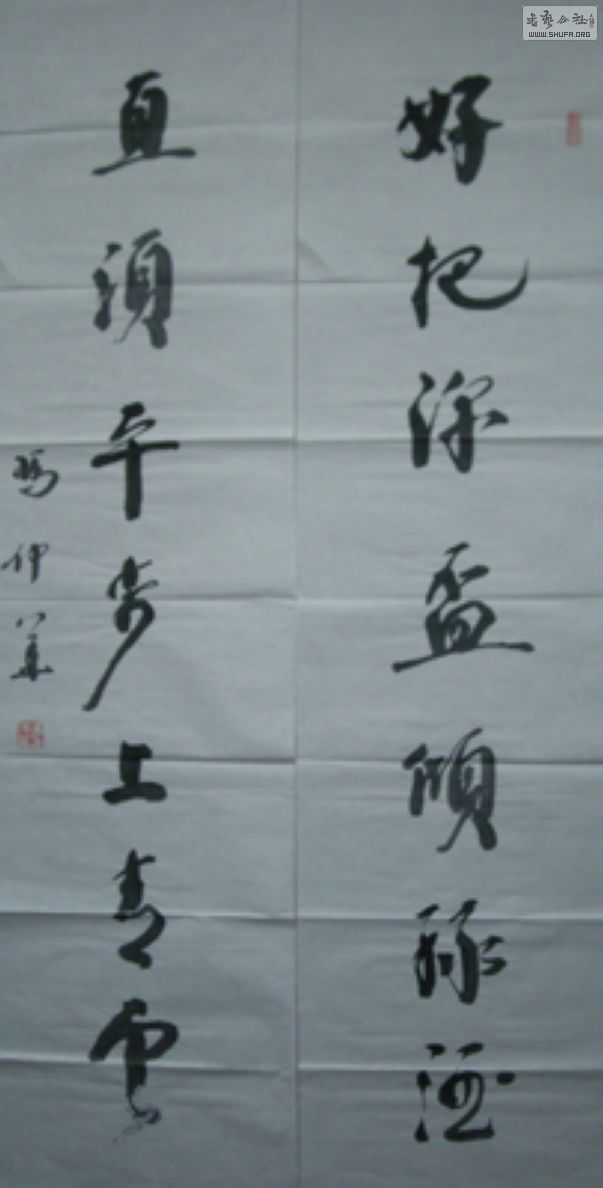 书艺公社
WWW.SHUFA.ORG
好把深盃傾酒
直須平步上青雲